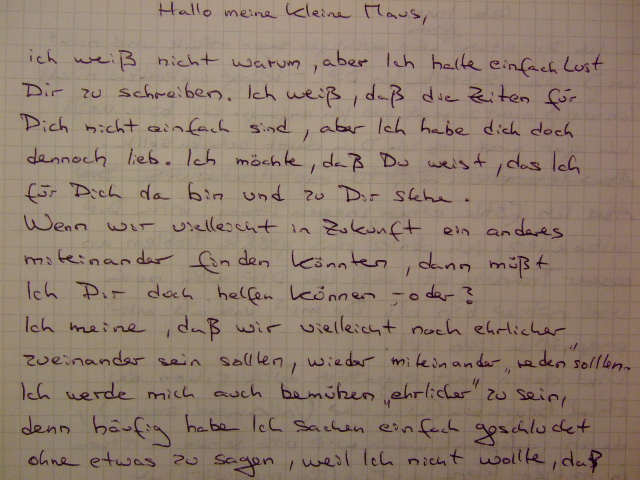 Hallo meine kleine Maus,
ich weiß nicht warum, aber Ich hatte einfach Lust
Dir zu schreiben. Ich weiß, daß die Zeiten für
Dich nicht einfach sind, aber Ich habe dich doch
dennoch lieb. Ich möchte, daß Du weist, das Ich
für Dich da bin und zu Dir stehe.
Wenn wir vielleicht in Zukunft ein anderes
miteinander finden könnten, dann müßt
Ich Dir doch helfen können - oder?
Ich meine, daß wir vielleicht noch ehrlicher
zueinander sein sollten, wieder miteinander „reden" sollten.
Ich werde mich auch bemühen „ehrlicher" zu sein,
denn häufig habe Ich Sachen einfach geschluckt
ohne etwas zu sagen, weil Ich nicht wollte, daß